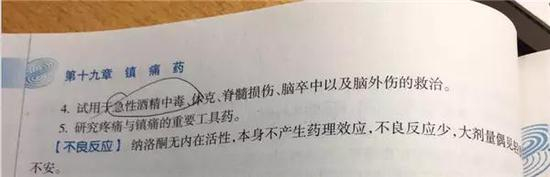 第十九章 镇痛药
4. 试用于急性酒精中毒、休克、脊髓损伤、脑卒中以及脑外伤的救治。
5. 研究疼痛与镇痛的重要工具药。
【不良反应】 纳洛酮无内在活性,本身不产生药理效应,不良反应少,大剂量偶见
不安。